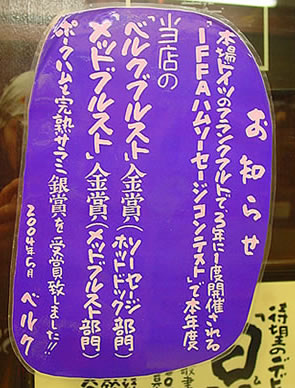 お知らせ
本場ドイツのフランクフルトで3年に1度開催される
「IFFAハムソーセージコンテスト」で本年度
当店の
「ベルクブルスト」金賞(ソーセージ ホットドック部門)
「メットブルスト」金賞(メットブルスト部門)
ポークハムと完熟サラミ銀賞を受賞致しました!!
2004年5月 ベルク
待望の